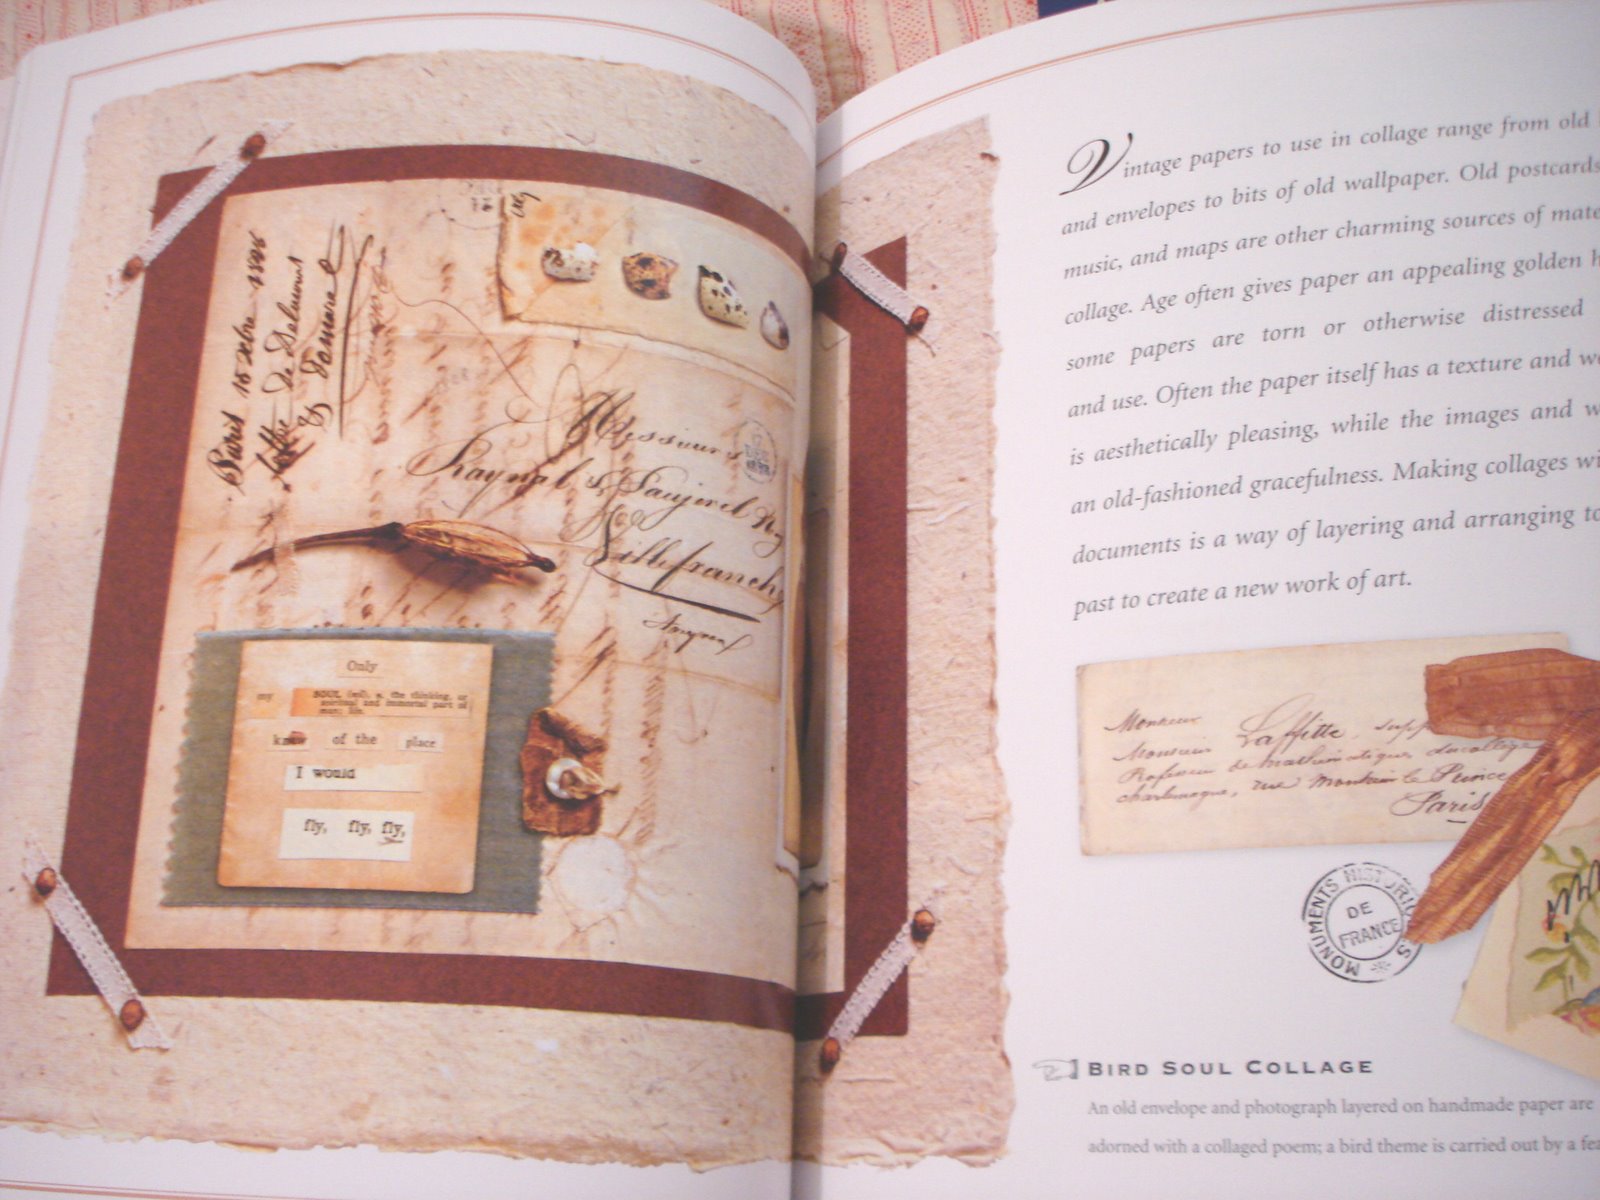 Paris 15
De
Messieurs
Raynal &
Villefranche
Only
my SOUL (sōl), n. the thinking, or
spiritual and immortal part of
man; life.
knew of the place
I would
fly, fly, fly,
Vintage papers to use in collage range from old
and envelopes to bits of old wallpaper. Old postcards
music, and maps are other charming sources of mate
collage. Age often gives paper an appealing golden h
some papers are torn or otherwise distressed
and use. Often the paper itself has a texture and w
is aesthetically pleasing, while the images and w
an old-fashioned gracefulness. Making collages wi
documents is a way of layering and arranging to
past to create a new work of art.
Monsieur
Monsieur Laffitte, supp
Professeur de mathématiques au collège
charlemagne, rue
Paris
MONUMENTS HISTORIQUES
DE
FRANCE
BIRD SOUL COLLAGE
An old envelope and photograph layered on handmade paper are
adorned with a collaged poem; a bird theme is carried out by a fea